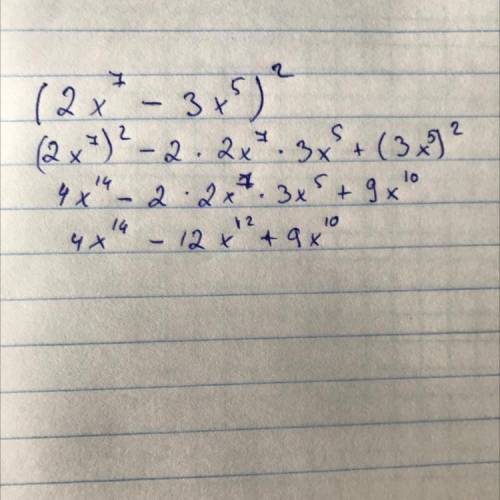 (2x⁷ - 3x⁵)²
(2x⁷)² - 2 · 2x⁷ · 3x⁵ + (3x⁵)²
4x¹⁴ - 2 · 2x⁷ · 3x⁵ + 9x¹⁰
4x¹⁴ - 12x¹² + 9x¹⁰